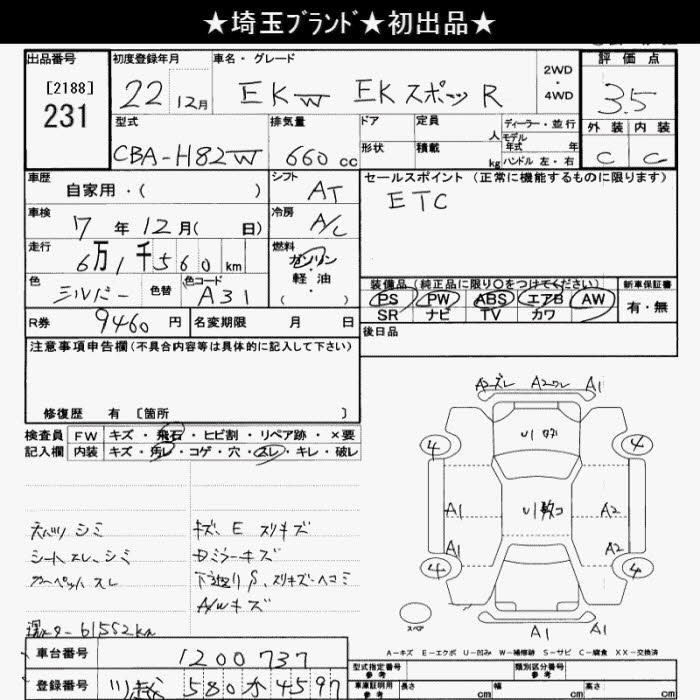 ★埼玉ﾌﾞﾗﾝﾄﾞ★初出品★
出品番号 初度登録年月 車名・グレード 2WD・4WD 評価点
[2188] 231 22 12月 EKW EKスポーツ R 3.5
型式 排気量 ドア 定員 人 ディーラー・並行 外装 内装
CBA-H82W 660cc 形状 積載 kg モデル年式 年 ハンドル 左・右 C C
車歴 自家用・( ) シフト AT セールスポイント (正常に機能するものに限ります)
ETC
車検 7年12月( 日) 冷房 A/C
走行 6万1千560km 燃料 ガソリン・軽油・( )
色 シルバー 色替 色コード A31
装備品 (純正品に限り○をつけてください) 新車保証書
PS PW ABS エアB AW 有・無
SR ナビ TV カワ
R券 9460円 名変期限 月 日 後日品
注意事項申告欄(不具合内容等は具体的に記入して下さい)
修復歴 有 [箇所 ]
検査員記入欄 FW キズ・飛石・ヒビ割・リペア跡・×要
内装 キズ・汚レ・コゲ・穴・スレ・キレ・破レ
A2 A1
4 U1 4
A1 U1 A2
A1 A2
4 4
スペア A1 A1
シミ キズ、E スリキズ
シートスレ、シミ ミラーキズ
カーペットスレ スリキズ・ヘコミ
A/Wキズ
61552km
A-キズ E-エクボ U-凹み W-補修跡 S-サビ C-腐食 XX-交換済
車台番号 1200737 型式指定番号 参考 類別区分番号 参考
登録番号 川越 580 4597 車庫証明用 参考 長さ cm 幅 cm 高さ cm